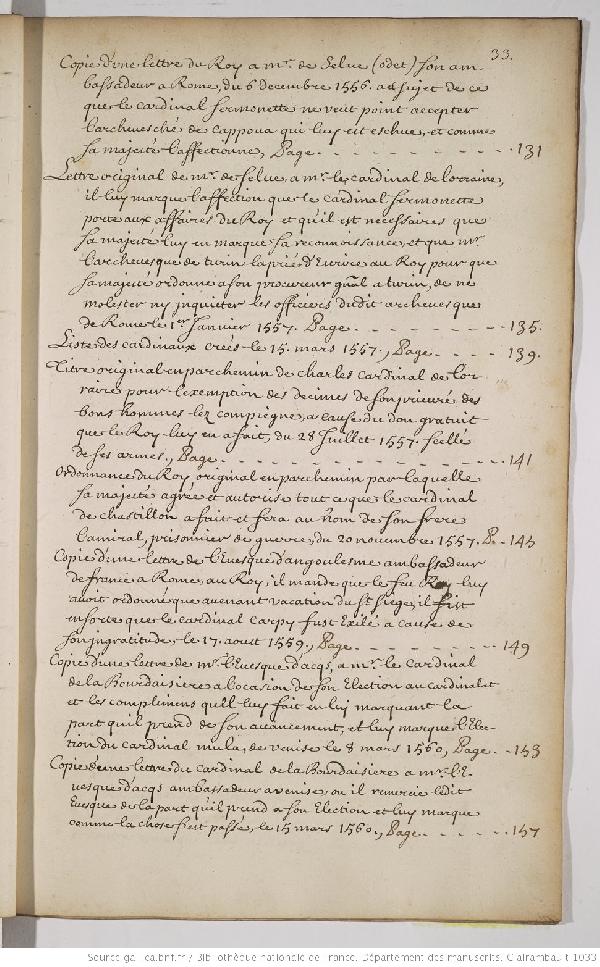 33.
Copie d'une lettre du Roy a mr. de Selue (odet) son am-
bassadeur a Rome, du 6 decembre 1556. au sujet de ce
que le cardinal sermonette ne veut point accepter
l'archevesché de cappoua qui luy est escheue, et comme
sa majesté l'affectionne, Page - - - - - - - 131
Lettre original de mr. de selue, a mr. le cardinal de lorraine,
il luy marque l'affection que le cardinal sermonette
porte aux affaires du Roy et qu'il est necessaires que
sa majesté luy en marque sa reconnoissance, et que mr.
l'archeuesque de turin la prié d'Ecrire au Roy pour que
sa majesté ordonne a son procureur gnal a turin, de ne
molester ny inquieter les officiers dudit archeuesque
de Rome le 1er Janvier 1557. Page - - - - - - - 135.
Liste des cardinaux creés le 15. mars 1557., Page - - - - 139.
Titre original en parchemin de charles cardinal de lor-
raine pour l'exemption des decimes de son prieuré des
bons hommes lez compiegne, a cause du don gratuit
que le Roy luy en a fait, du 28 Juillet 1557. scellé
de ses armes, Page - - - - - - - - - - 141
Ordonnance du Roy, original en parchemin par laquelle
sa majesté agreé et autorise tout ce que le cardinal
de chastillon a fait et fera au nom de son frere
l'amiral, prisonnier de guerre, du 20 novembre 1557. P. - 145
Copie d'une lettre de l'Euesque d'angoulesme ambassadeur
de france a Rome, au Roy, il mande que le feu Roy luy
auoit ordonné que auenant vacation du St Siege, il fist
ensorte que le cardinal Carpy fust Exilé a cause de
son ingratitude, le 17. aoust 1559., Page - - - - - - 149
Copie d'une lettre de mr. l'Euesque d'acqs, a mr. le cardinal
de la Bourdaisiere a l'ocasion de son Election au cardinalat
et les complimens qu'il luy fait en luy marquant la
part qu'il prend de son auancement, et luy marque l'Elec-
tion du cardinal mula, de venise le 8 mars 1560, Page - 153
Copie d'une lettre du cardinal de la Bourdaisiere a mr. l'E-
uesque d'acqs ambassadeur a venise, ou il remercie ledit
Euesque de la part qu'il prend a son Election et luy marque
comme la chose s'est passé, le 15 mars 1560., Page - - - - - 157
Source gallica.bnf.fr / Bibliothèque nationale de France. Département des manuscrits. Clairambault 1033